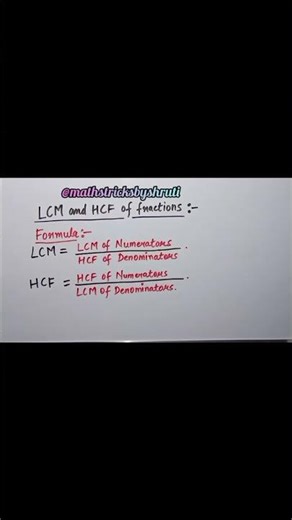 @mathstricksbyshruti
LCM and HCF of fractions :-
Formula:-
LCM = LCM of Numerators .
HCF of Denominators
HCF = HCF of Numerators .
LCM of Denominators.